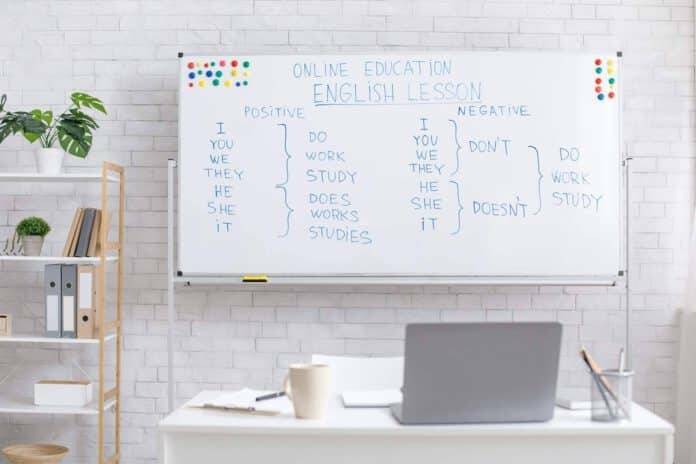 ONLINE EDUCATION
ENGLISH LESSON
POSITIVE
I
YOU
WE
THEY
HE
SHE
iT
DO
WORK
STUDY
DOES
WORKS
STUDIES
NEGATIVE
I
YOU
WE
THEY
HE
SHE
iT
DON'T
DOESN'T
DO
WORK
STUDY